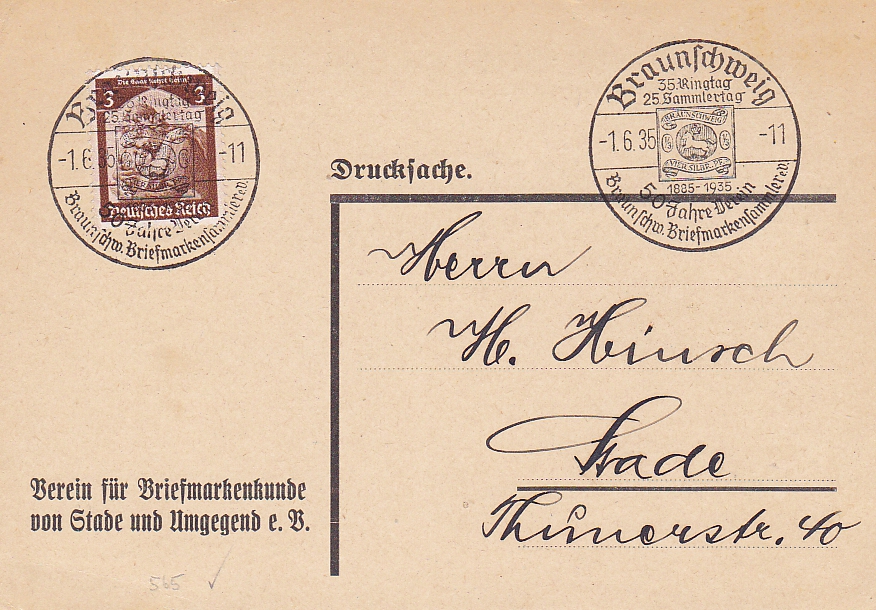 Die Saar kehrt heim!
3 3
Deutsches Reich
Braunschweig
35. Ringtag
25. Sammlertag
-1.6.35 -11
50 Jahre Verein
Braunschw. Briefmarkensammler e.V.
Braunschweig
35. Ringtag
25. Sammlertag
BRAUNSCHWEIG
-1.6.35 -11
VIER SILBR. PF.
1885-1935
50 Jahre Verein
Braunschw. Briefmarkensammler e.V.
Drucksache.
Herrn
H. Hinsch
Stade
Thunerstr. 40
Verein für Briefmarkenkunde
von Stade und Umgegend e. V.
565